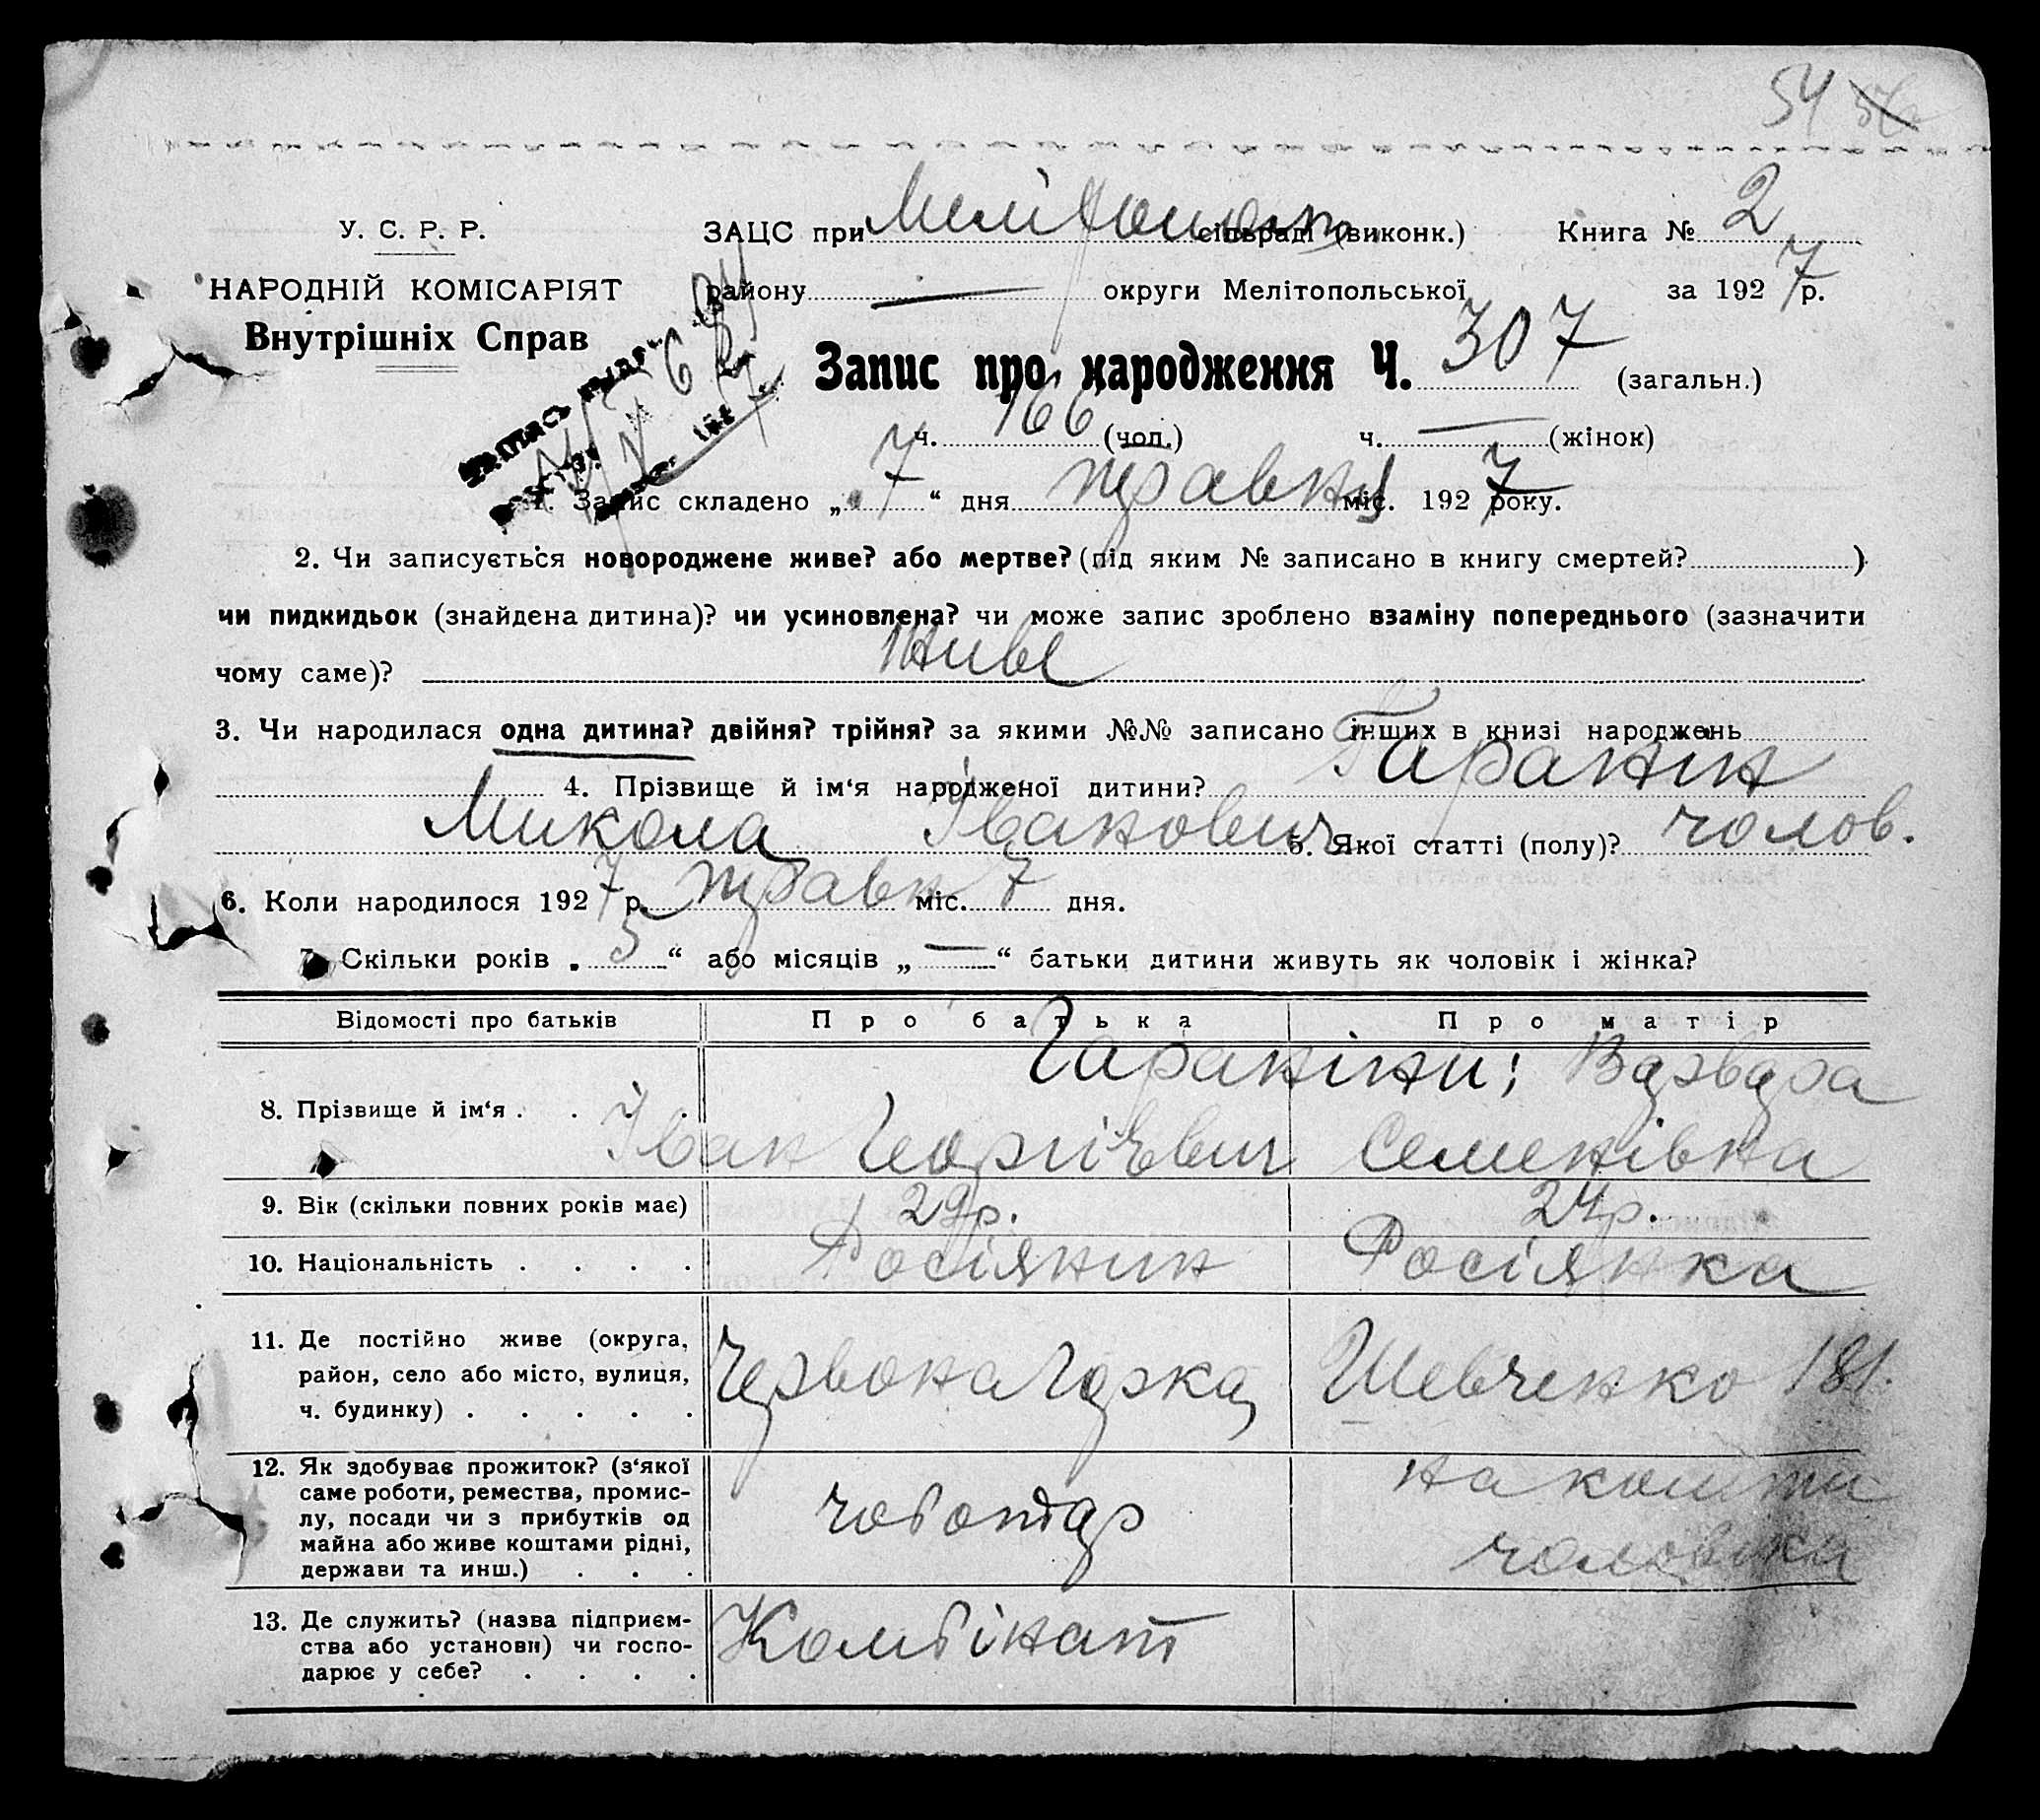 54 56
У. С. Р. Р.
ЗАЦС при Мелітопольск сільраді (виконк.) Книга № 2
НАРОДНІЙ КОМІСАРІЯТ
району — округи Мелітопольської за 1927 р.
Внутрішніх Справ
Запис про народження Ч. 307 (загальн.)
ч. 166 (чол.) ч. — (жінок)
1. Запис складено „ 7 “ дня травня міс. 1927 року.
2. Чи записується новороджене живе? або мертве? (під яким № записано в книгу смертей? )
чи пидкидьок (знайдена дитина)? чи усиновлена? чи може запис зроблено взаміну попереднього (зазначити
чому саме)? живе
3. Чи народилася одна дитина? двійня? трійня? за якими №№ записано інших в книзі народжень
4. Прізвище й ім‘я народженої дитини? Гаранин
Микола Іванович 5. Якої статті (полу)? чолов.
6. Коли народилося 1927 р. травн міс. 7 дня.
7. Скільки років „ 5 “ або місяців „ — “ батьки дитини живуть як чоловік і жінка?
Відомості про батьків Про батька Про матір
Гараніни; Варвара
8. Прізвище й ім‘я . . . . Іван Георгієвич Семенівна
9. Вік (скільки повних років має) 29 р. 24 р.
10. Національність . . . . Росіянин Росіянка
11. Де постійно живе (округа,
район, село або місто, вулиця,
ч. будинку) . . . . . Червона Горка, Шевченко 181.
12. Як здобуває прожиток? (з‘якої
саме роботи, ремества, промис-
лу, посади чи з прибутків од
майна або живе коштами рідні,
держави та инш.) . . . чоботар на кошти
чоловіка
13. Де служить? (назва підприєм-
ства або установи) чи госпо-
дарює у себе? . . . . Комбінат